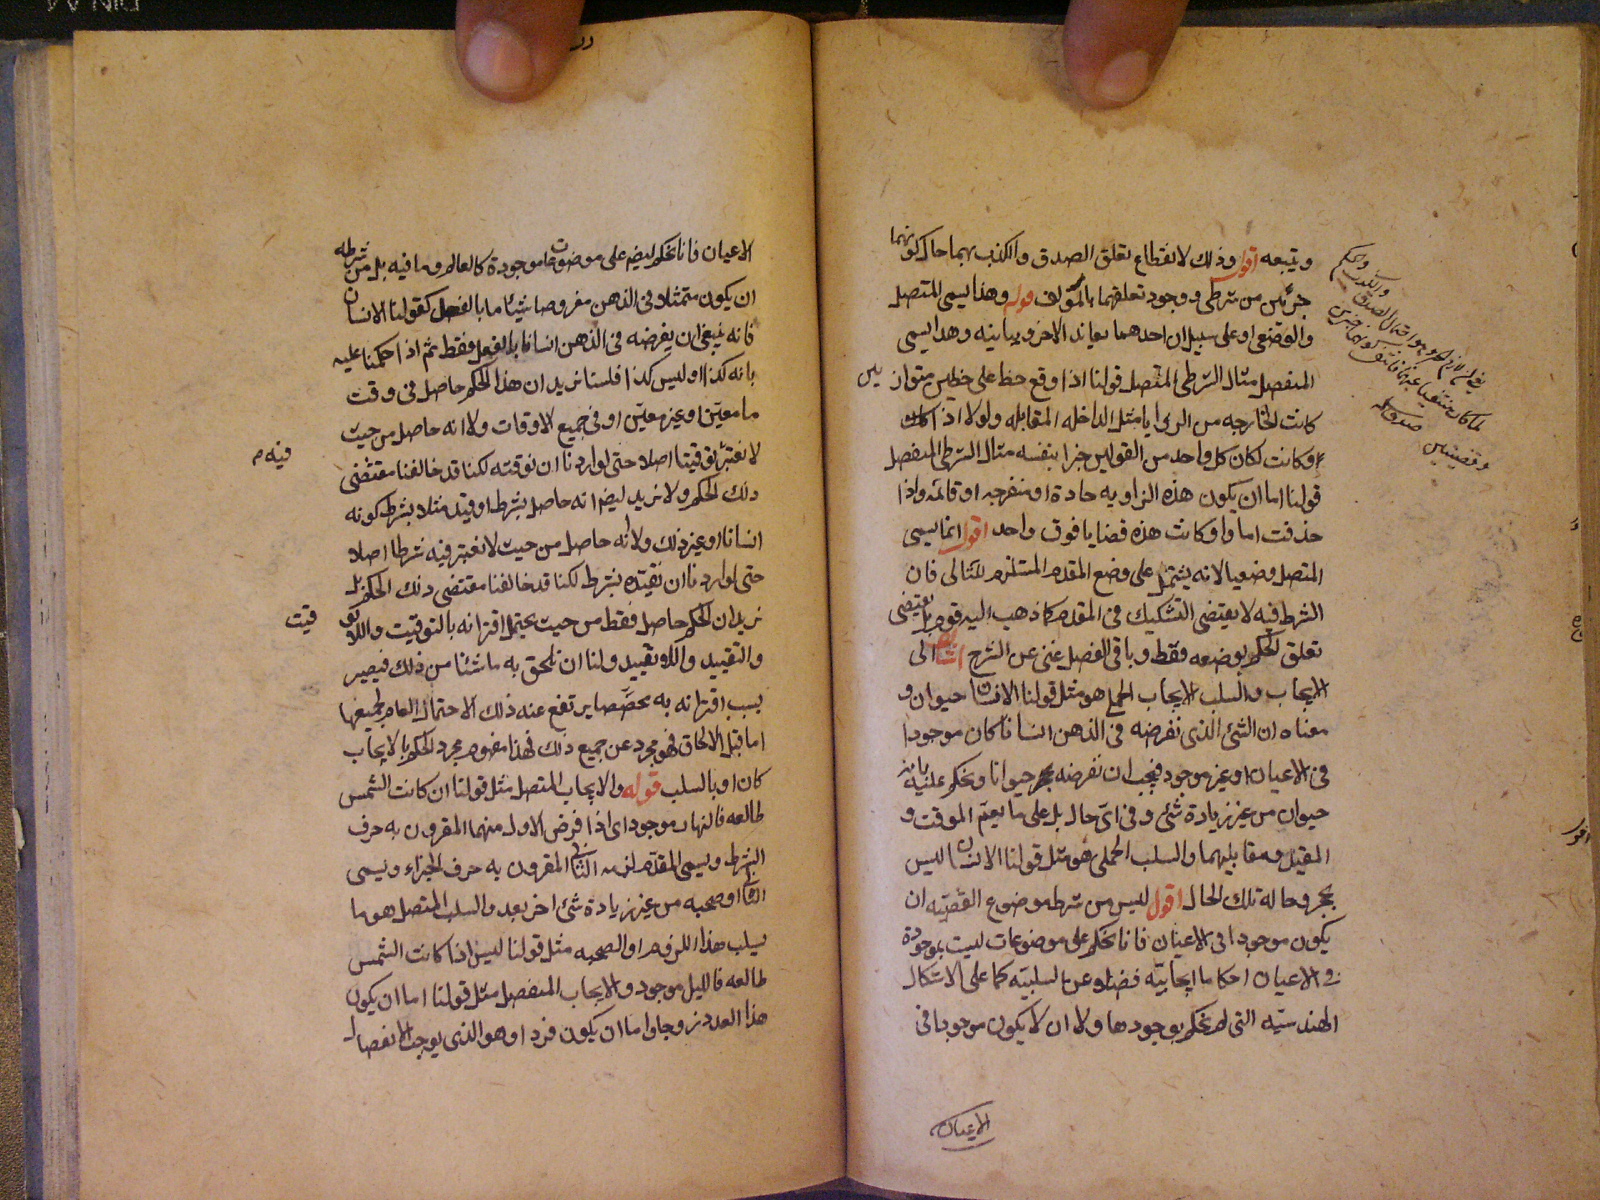 ويتبعه اقول وذلك لانقطاع تعلق الصدق والكذب بهما حال كونهما
جزئين من شرطى ووجود تعلقهما بالمؤلف قوله وهذا يسمى المتصل
والوضعى او على سبيل ان احدهما يعاند الاخر ويباينه وهذا يسمى
المنفصل مثال الشرطى المتصل قولنا اذا وقع خط على خطين متواز
يين
كانت الخارجه من الزوايا مثل الداخله المقابله ولولا اذا
وكانت لكان كل واحد من القولين خبرا بنفسه مثال الشرطى المنفصل
قولنا اما ان يكون هذه الزاويه حادة او منفرجه او قائمه واذا
حذفت اما واو كانت هذه قضايا فوق واحد اقول انما يسمى
المتصل وضعيا لانه يشتمل على وضع المقدم المستلزم للتالى فان
الشرط فيه لا يقتضى التشكيك فى المقدم كما ذهب اليه قوم بل يقتضى
تعلق الحكم بوضعه فقط وباقى الفصل غنى عن الشرح الى
الايجاب والسلب الايجاب الحملى هو مثل قولنا الانسان حيوان و
معناه ان الشئ الذى نفرضه فى الذهن انسانا كان موجودا
فى الاعيان او غير موجود فيجب ان نفرضه حيوانا ونحكم عليه بانه
حيوان من غير زيادة شئ وفى اىّ حال بل على ما يعمّ الموقت و
المقيد ومقابليهما والسلب الحملى هو مثل قولنا الانسان ليس
بحجر وحاله تلك الحال اقول ليس من شرط موضوع القضيّه ان
يكون موجودا فى الاعيان فانا نحكم على موضوعات ليست بموجودة
فى الاعيان احكاما ايجابيّه فضلا عن السلبيّه كما على الاشكال
الهندسيّه التى لم نحكم بوجودها ولا ان لا يكون موجودا فى
الاعيان
الاعيان فانا نحكم ايضا على موضوعات موجودة كالعالم وما فيه بل من شرطه
ان يكون متمثلا فى الذهن مفروضا شيئا ما بالفعل كقولنا الانسان
فانه ينبغى ان يفرضه فى الذهن انسانا بالفعل فقط ثم اذا حكمنا عليه
بانه كذا او ليس كذا فلسنا نريد ان هذا الحكم حاصل فى وقت
ما معيّن او غير معيّن او فى جميع الاوقات ولا انه حاصل من حيث
لا نعتبر توقيتا اصلا حتى لو اردنا ان نوقته لكنا قد خالفنا مقتضى
فيه م
ذلك الحكم ولا نريد ايضا انه حاصل بشرط او قيد مثلا بشرط كونه
انسانا او غير ذلك ولا انه حاصل من حيث لا نعتبر فيه شرطا اصلا
حتى لو اردنا ان نقيّده بشرط لكنا قد خالفنا مقتضى ذلك الحكم بل
نريد ان الحكم حاصل فقط من حيث يحتمل اقترانه بالتوقيت واللاتو
قيت
والتقييد واللاتقييد ولنا ان نلحق به ما شئنا من ذلك فيصير
بسبب اقترانه به مخصّصا يرتفع عنه ذلك الاحتمال العام لجميعها
اما قبل الالحاق فهو مجرد عن جميع ذلك فهذا مفهوم مجرد الحكم بالايجاب
كان او بالسلب قوله والايجاب المتصل مثل قولنا ان كانت الشمس
طالعه فالنهار موجود اى اذا فرض الاول منهما المقرون به حرف
الشرط ويسمى المقدّم لزمه الثانى المقرون به حرف الجزاء ويسمى
التالى او صحبه من غير زيادة شئ اخر بعد والسلب المتصل هو ما
يسلب هذا اللزوم او الصحبه مثل قولنا ليس اذا كانت الشمس
طالعه فالليل موجود والايجاب المنفصل مثل قولنا اما ان يكون
هذا العدد زوجا واما ان يكون فردا وهو الذى يوجب الانفصال